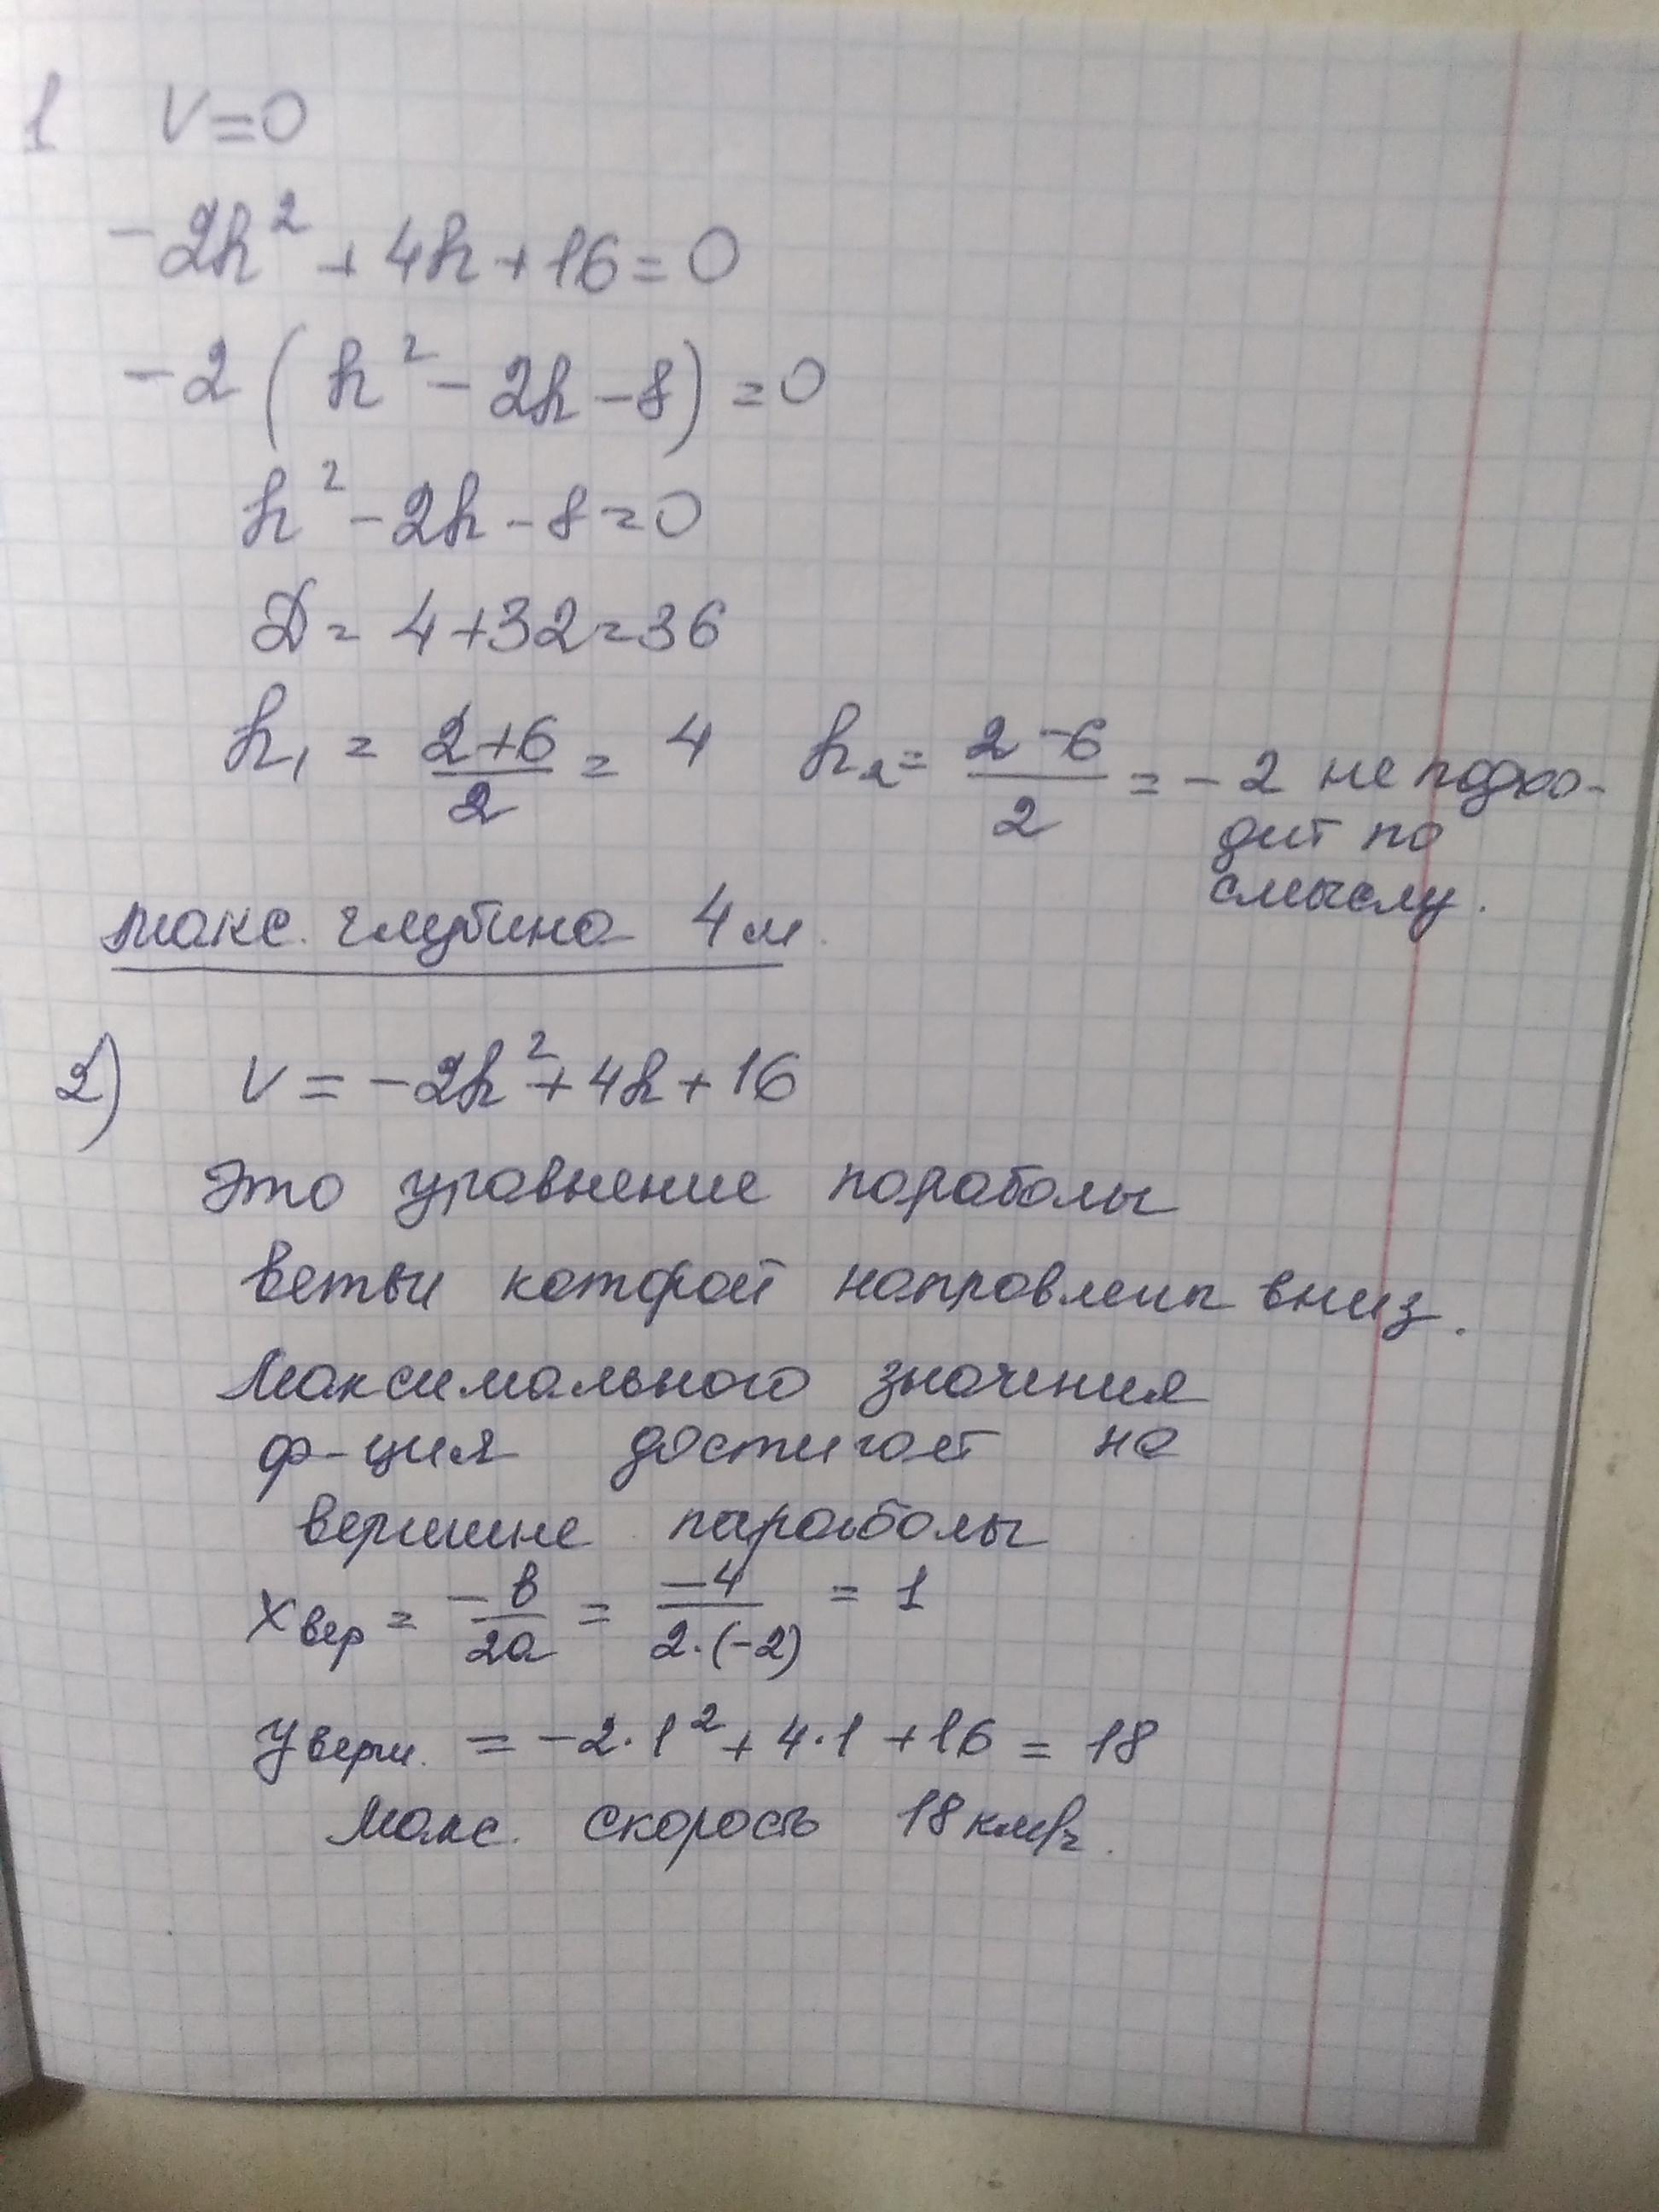 1 V=0
-2h² + 4h + 16 = 0
-2 ( h² - 2h - 8) = 0
h² - 2h - 8 = 0
D = 4 + 32 = 36
h₁ = (2+6)/2 = 4 h₂ = (2-6)/2 = -2 не подхо-
дит по
смыслу.
макс. глубина 4 м.
2) V = -2h² + 4h + 16
Это уравнение параболы
ветви которой направлены вниз.
Максимального значения
ф-ция достигает на
вершине параболы
x вер = -b/2a = -4/2·(-2) = 1
y верш. = -2·1² + 4·1 + 16 = 18
Макс. скорость 18 км/ч.